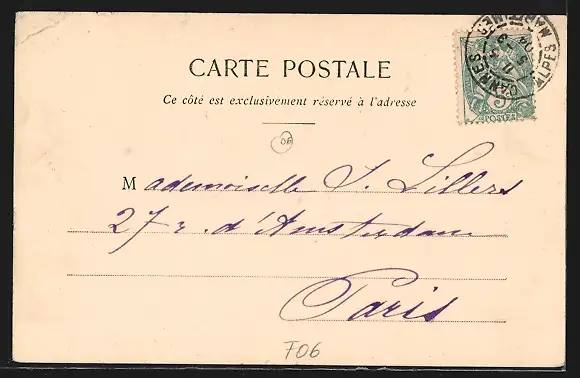 CARTE POSTALE
Ce côté est exclusivement réservé à l'adresse
CANNES
ALPES MARITIMES
5
POSTES
Mademoiselle J. Lillers
27 r. d'Amsterdam
Paris
F06